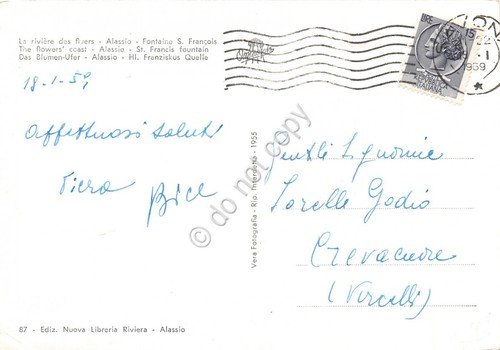 La rivière des fleurs - Alassio - Fontaine S. François
The flowers' coast - Alassio - St. Francis fountain
Das Blumen-Ufer - Alassio - Hl. Franziskus Quelle
LIRE
ITALIANA
15
22
1
1959
18-1-59
Affettuosi saluti
Piera
Bice
Gentili Signorine
Sorelle Godio
Crevacuore
(Vercelli)
Vera Fotografia - Rip. Interdetta - 1955
© do not copy
87 - Ediz. Nuova Libreria Riviera - Alassio